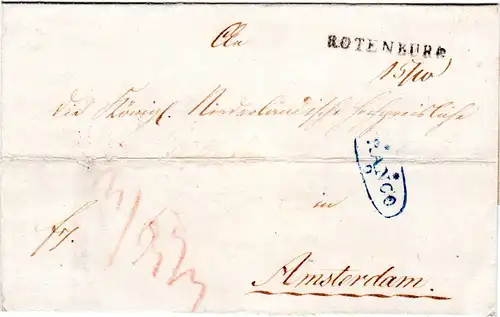 An
ROTENBURG
15/10
die Königl. Niederländische hochpreisliche
FRANCO
in
fr.
Amsterdam.